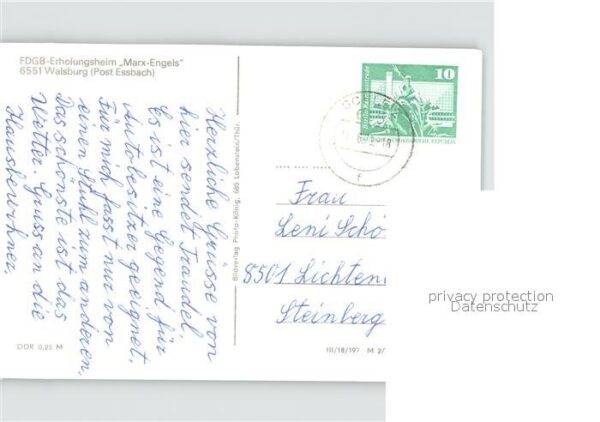 FDGB-Erholungsheim „Marx-Engels"
6551 Walsburg (Post Essbach)
Herzliche Grüsse von
hier sendet Traudel.
Es ist eine Gegend für
Autobesitzer geeignet.
Für mich fasst nur von
einen Stuhl zum anderen.
Das schönste ist das
Wetter. Gruss an die
Hausbewohner.
DDR 0,25 M
Bildverlag Photo-König, 685 Lobenstein/Thür.
10
Frau
Leni Schö
8501 Lichten
Steinberg
III/18/197 M 2/
privacy protection
Datenschutz